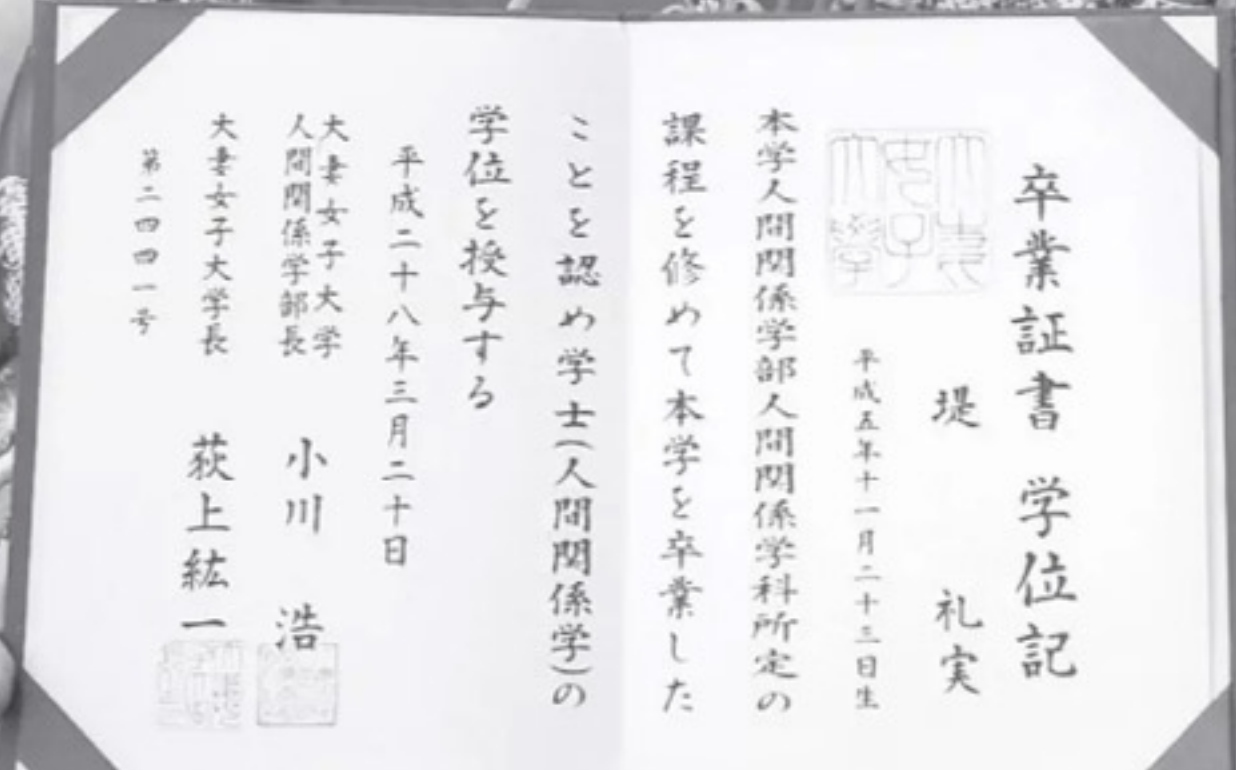 卒業証書 学位記
堤 礼実
平成五年十一月二十三日生
本学人間関係学部人間関係学科所定の
課程を修めて本学を卒業した
ことを認め学士(人間関係学)の
学位を授与する
平成二十八年三月二十日
大妻女子大学
人間関係学部長 小川 浩
大妻女子大学長 荻上紘一
第二四四一号